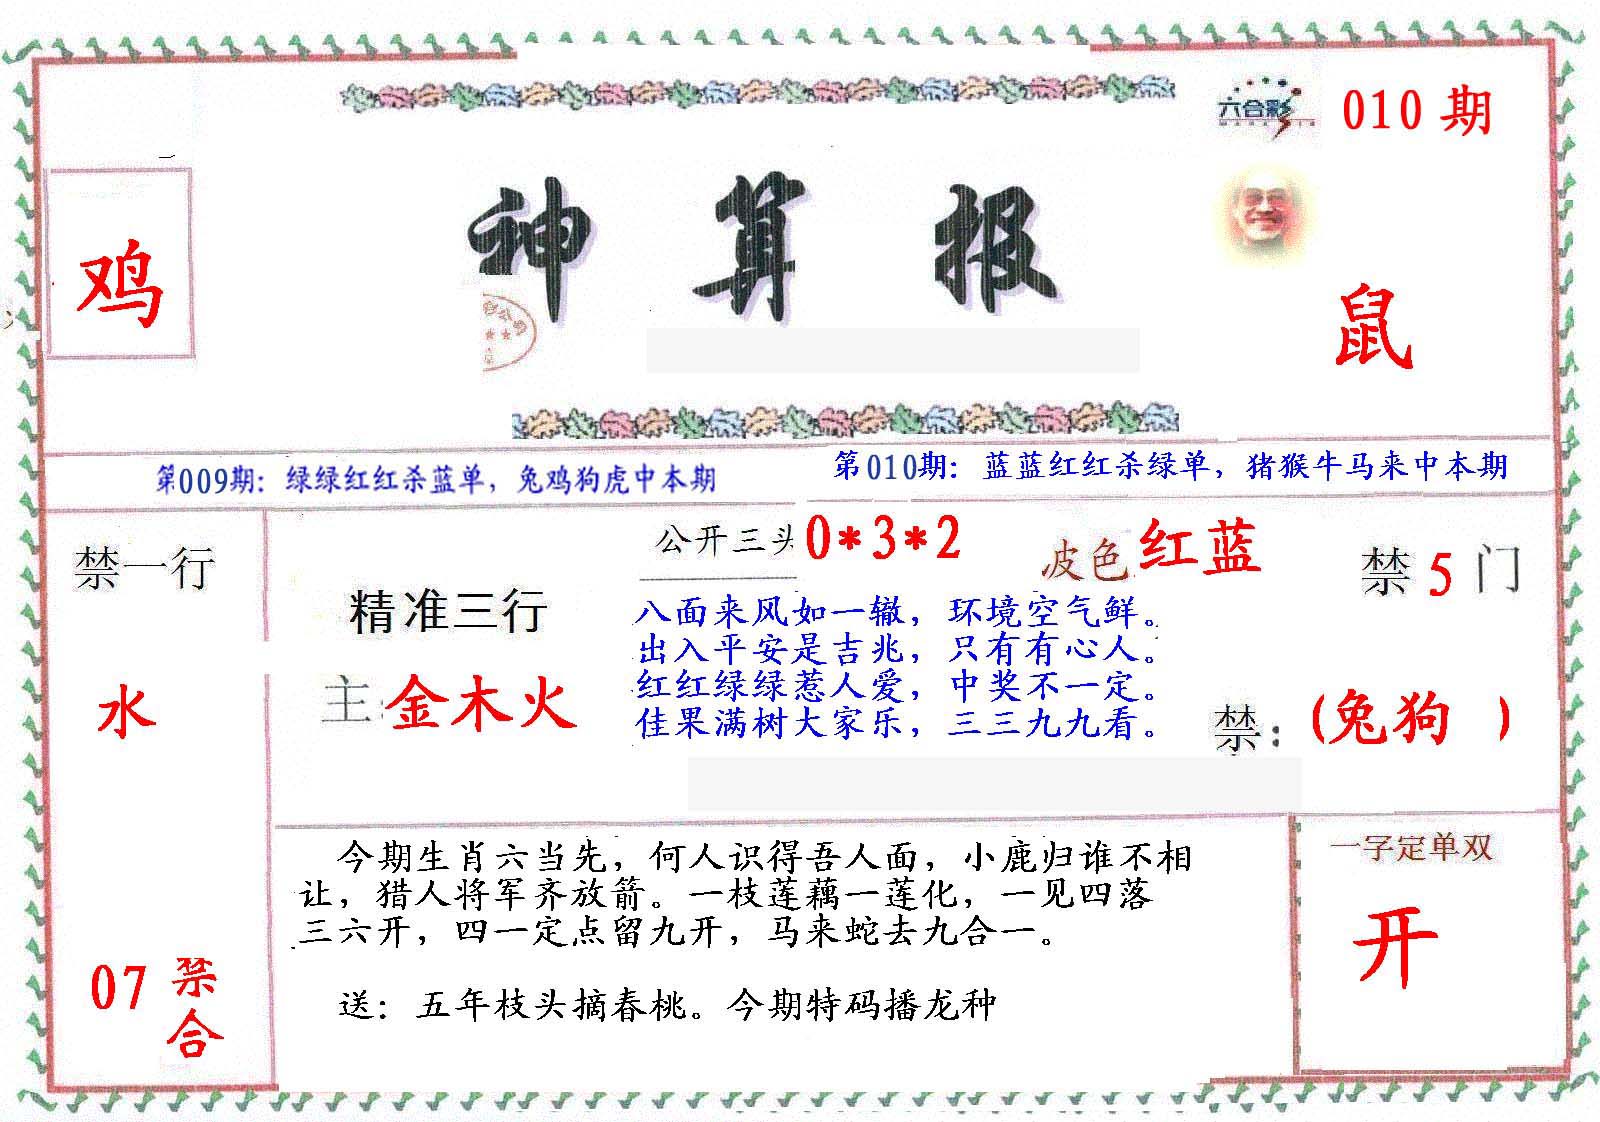 六合彩
010 期
神算报
鸡
鼠
第009期：绿绿红红杀蓝单，兔鸡狗虎中本期
第010期：蓝蓝红红杀绿单，猪猴牛马来中本期
禁一行
水
07 禁合
精准三行
主:金木火
公开三头 0*3*2
波色:红蓝
禁 5 门
八面来风如一辙，环境空气鲜。
出入平安是吉兆，只有有心人。
红红绿绿惹人爱，中奖不一定。
佳果满树大家乐，三三九九看。
禁：(兔狗 )
今期生肖六当先，何人识得吾人面，小鹿归谁不相
让，猎人将军齐放箭。一枝莲藕一莲化，一见四落
三六开，四一定点留九开，马来蛇去九合一。
送：五年枝头摘春桃。今期特码播龙种
一字定单双
开